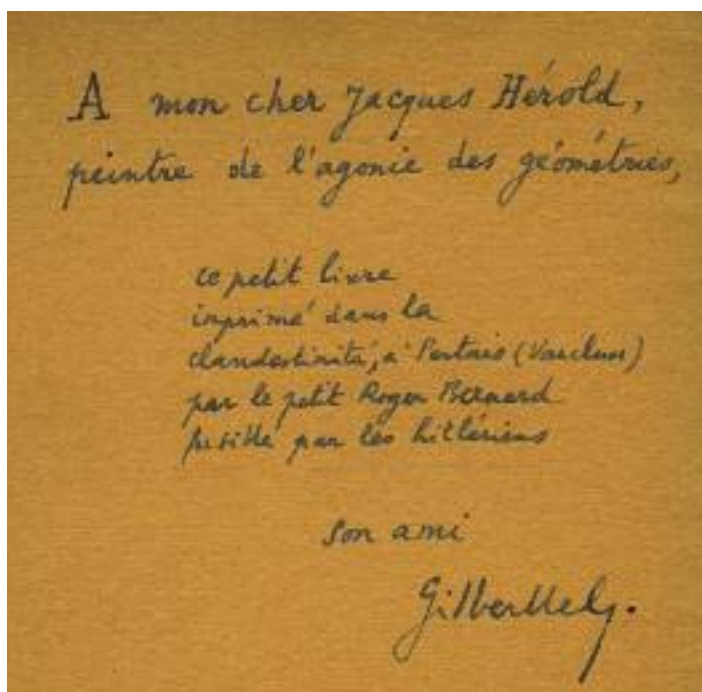 A mon cher Jacques Hérold,
peintre de l'agonie des géométries,
ce petit livre
imprimé dans la
clandestinité, à Pertuis (Vaucluse)
par le petit Roger Bernard
fusillé par les hitlériens
son ami
Gilbert Lely.